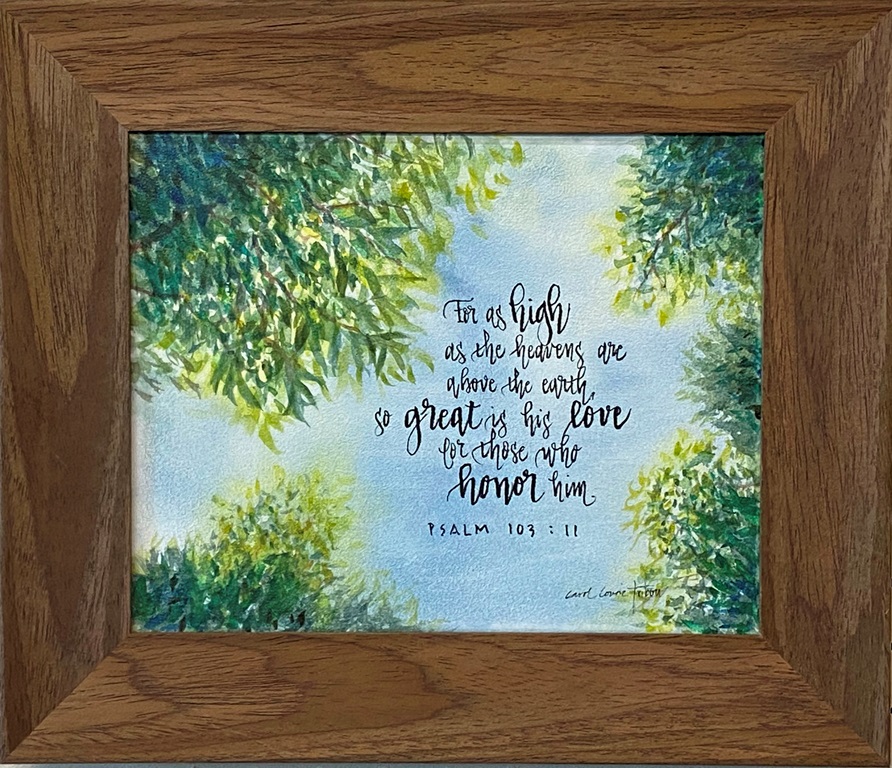 For as high
as the heavens are
above the earth,
so great is his love
for those who
honor him.
PSALM 103:11
Carol